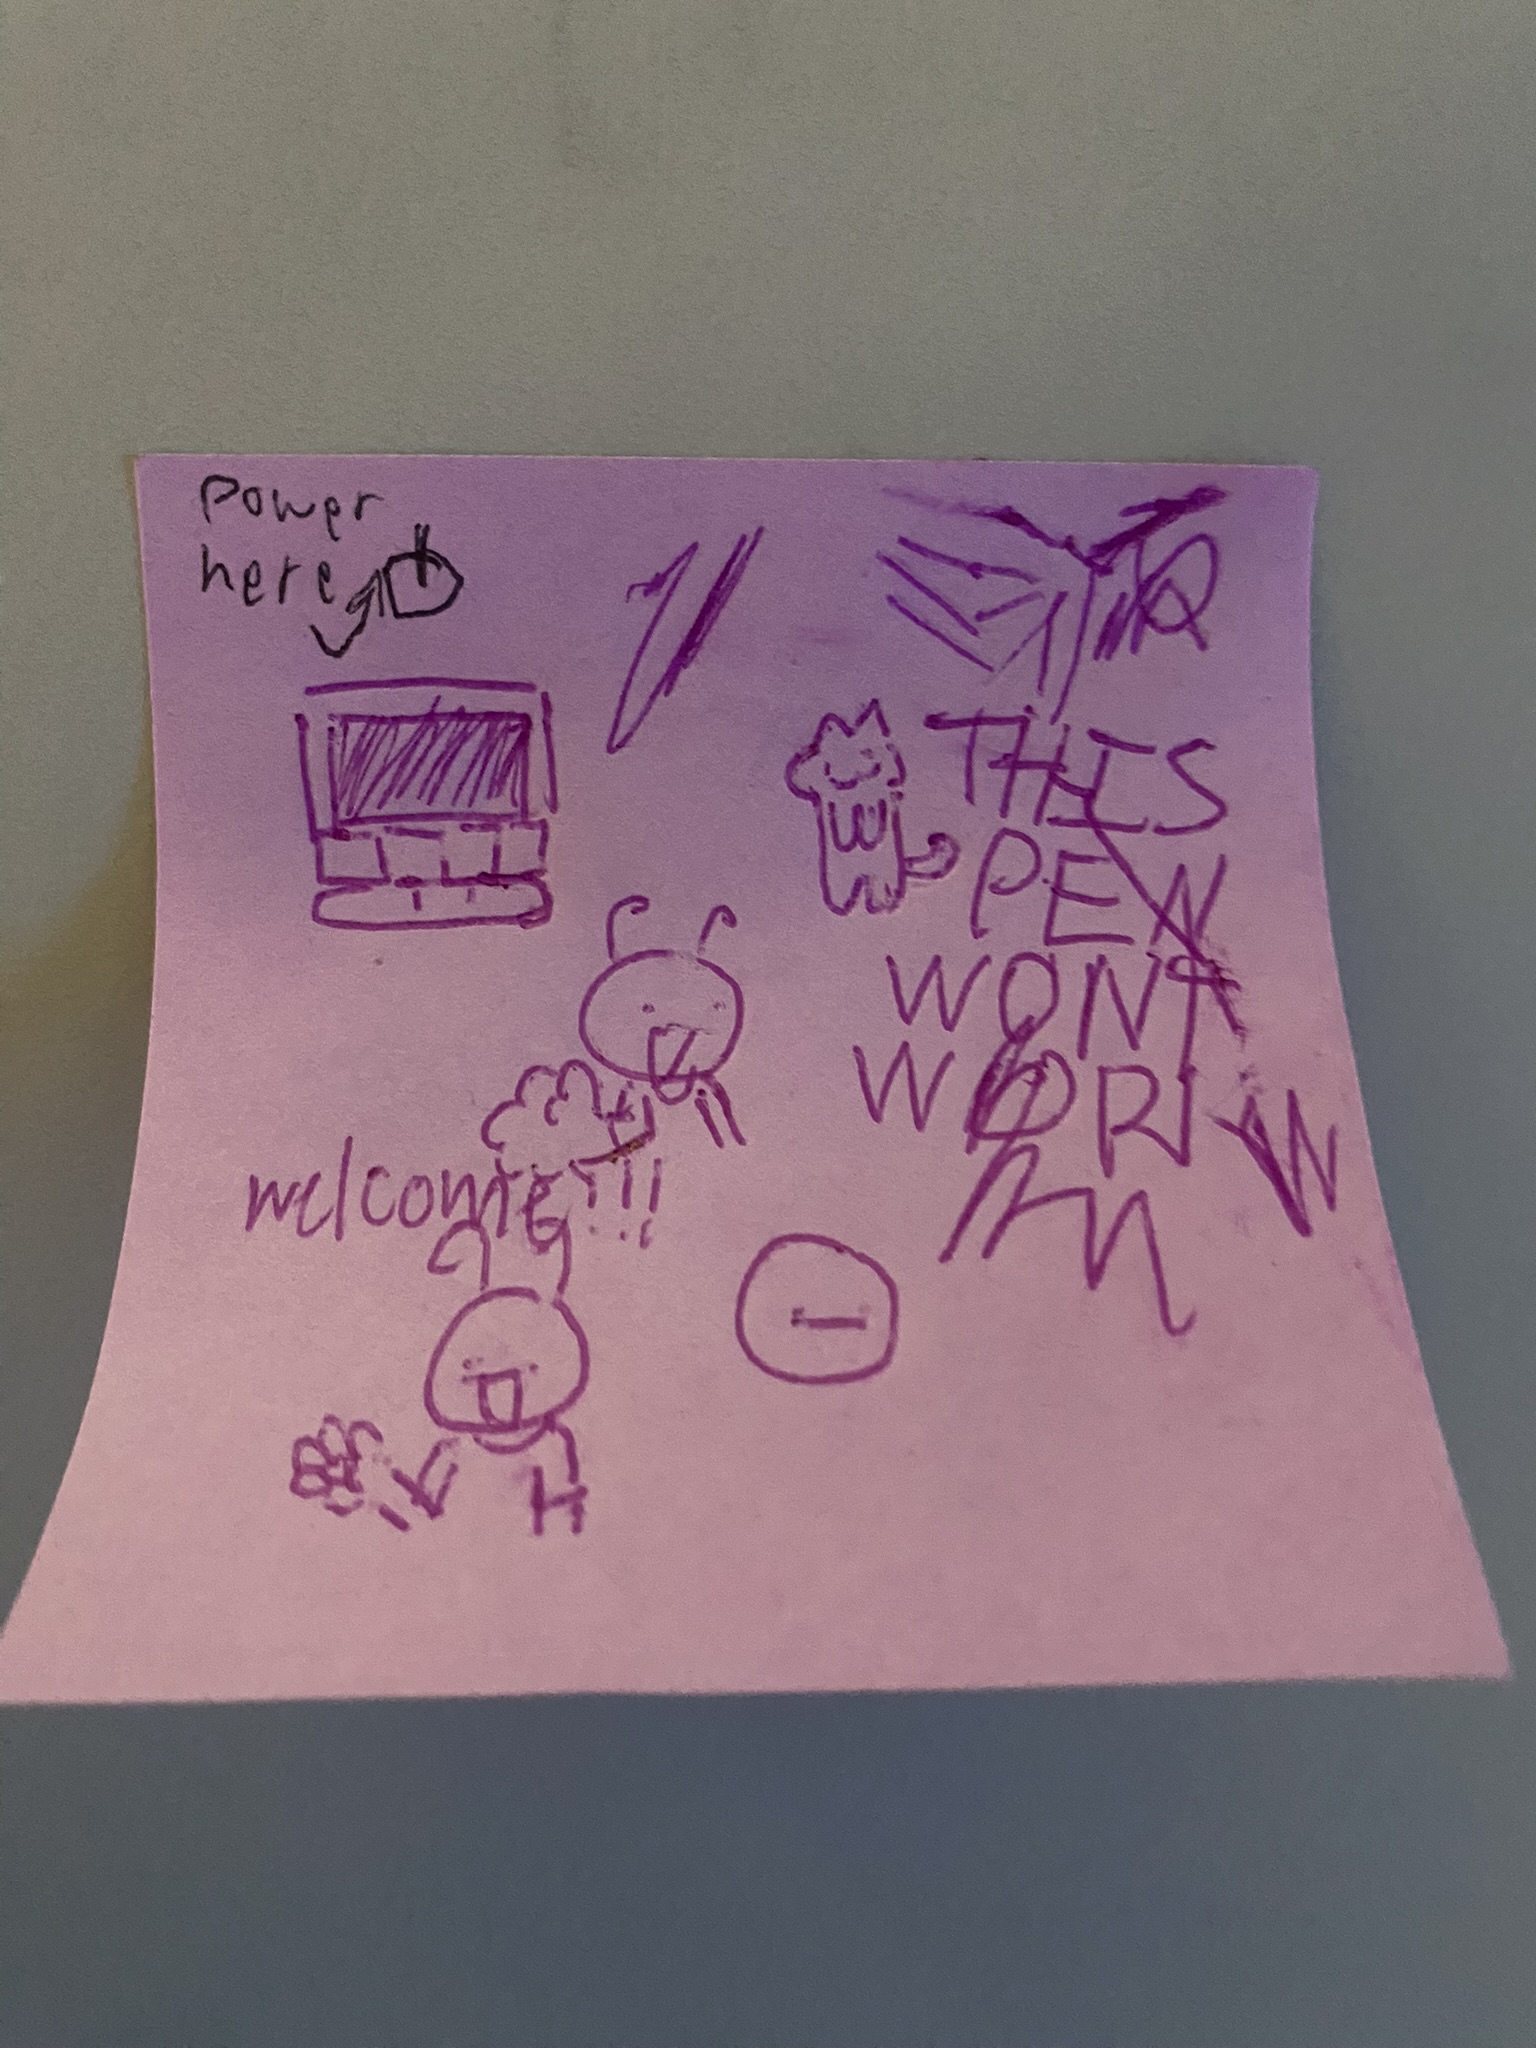 Power
here
THIS
PEN
WONT
WORK
welcome!!!